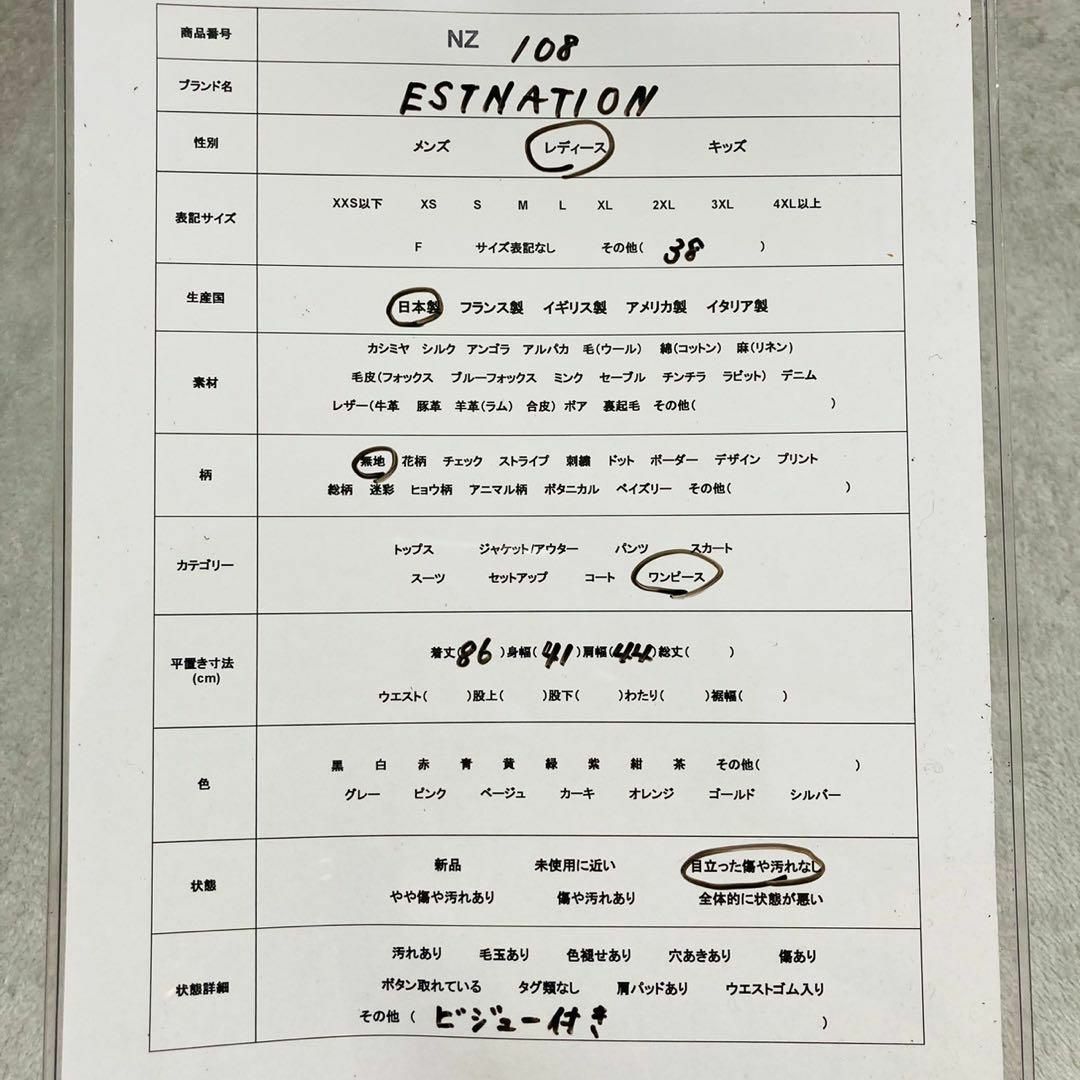 商品番号 NZ 108
ブランド名 ESTNATION
性別 メンズ レディース キッズ
表記サイズ
XXS以下 XS S M L XL 2XL 3XL 4XL以上
F サイズ表記なし その他( 38 )
生産国 日本製 フランス製 イギリス製 アメリカ製 イタリア製
素材
カシミヤ シルク アンゴラ アルパカ 毛(ウール) 綿(コットン) 麻(リネン)
毛皮(フォックス ブルーフォックス ミンク セーブル チンチラ ラビット) デニム
レザー(牛革 豚革 羊革(ラム) 合皮) ボア 裏起毛 その他( )
柄
無地 花柄 チェック ストライプ 刺繍 ドット ボーダー デザイン プリント
総柄 迷彩 ヒョウ柄 アニマル柄 ボタニカル ペイズリー その他( )
カテゴリー
トップス ジャケット/アウター パンツ スカート
スーツ セットアップ コート ワンピース
平置き寸法
(cm)
着丈(86)身幅(41)肩幅(44)総丈( )
ウエスト( )股上( )股下( )わたり( )裾幅( )
色
黒 白 赤 青 黄 緑 紫 紺 茶 その他( )
グレー ピンク ベージュ カーキ オレンジ ゴールド シルバー
状態
新品 未使用に近い 目立った傷や汚れなし
やや傷や汚れあり 傷や汚れあり 全体的に状態が悪い
状態詳細
汚れあり 毛玉あり 色褪せあり 穴あきあり 傷あり
ボタン取れている タグ類なし 肩パッドあり ウエストゴム入り
その他 ( ビジュー付き )